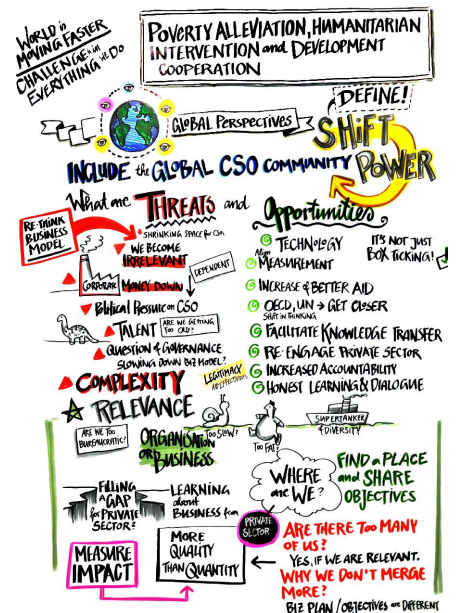 WORLD is
MOVING FASTER
CHALLENGE is in
EVERYTHING we DO
POVERTY ALLEVIATION, HUMANITARIAN
INTERVENTION and DEVELOPMENT
COOPERATION
GLOBAL PERSPECTIVES
DEFINE!
SHIFT
POWER
INCLUDE the GLOBAL CSO COMMUNITY
What are THREATS and
Opportunities
RE-THINK
BUSINESS
MODEL
SHRINKING SPACE for CSOs
WE BECOME
IRRELEVANT
CORPORATE MONEY DOWN
DEPENDENT
Political Pressure on CSO
TALENT
ARE WE GETTING
TOO OLD?
QUESTION of GOVERNANCE
SLOWING DOWN BIZ MODEL?
LEGITIMACY
COMPLEXITY
RELEVANCE
TECHNOLOGY
IT'S NOT JUST
BOX TICKING!
Align
MEASUREMENT
INCREASE & BETTER AID
OECD, UN → GET CLOSER
SHIFT in THINKING
FACILITATE KNOWLEDGE TRANSFER
RE-ENGAGE PRIVATE SECTOR
INCREASED ACCOUNTABILITY
HONEST LEARNING & DIALOGUE
ARE WE TOO
BUREAUCRATIC?
ORGANISATION
OR BUSINESS
TOO SLOW?
TOO FAT?
SUPERTANKER
& DIVERSITY
FILLING
A GAP
for PRIVATE
SECTOR?
LEARNING
about
BUSINESS from
PRIVATE
SECTOR
WHERE
are WE?
FIND A PLACE
and SHARE
OBJECTIVES
MEASURE
IMPACT
MORE
QUALITY
THAN QUANTITY
ARE THERE TOO MANY
OF US?
YES, IF WE ARE RELEVANT.
WHY WE DON'T MERGE
MORE?
BIZ PLAN / OBJECTIVES are DIFFERENT